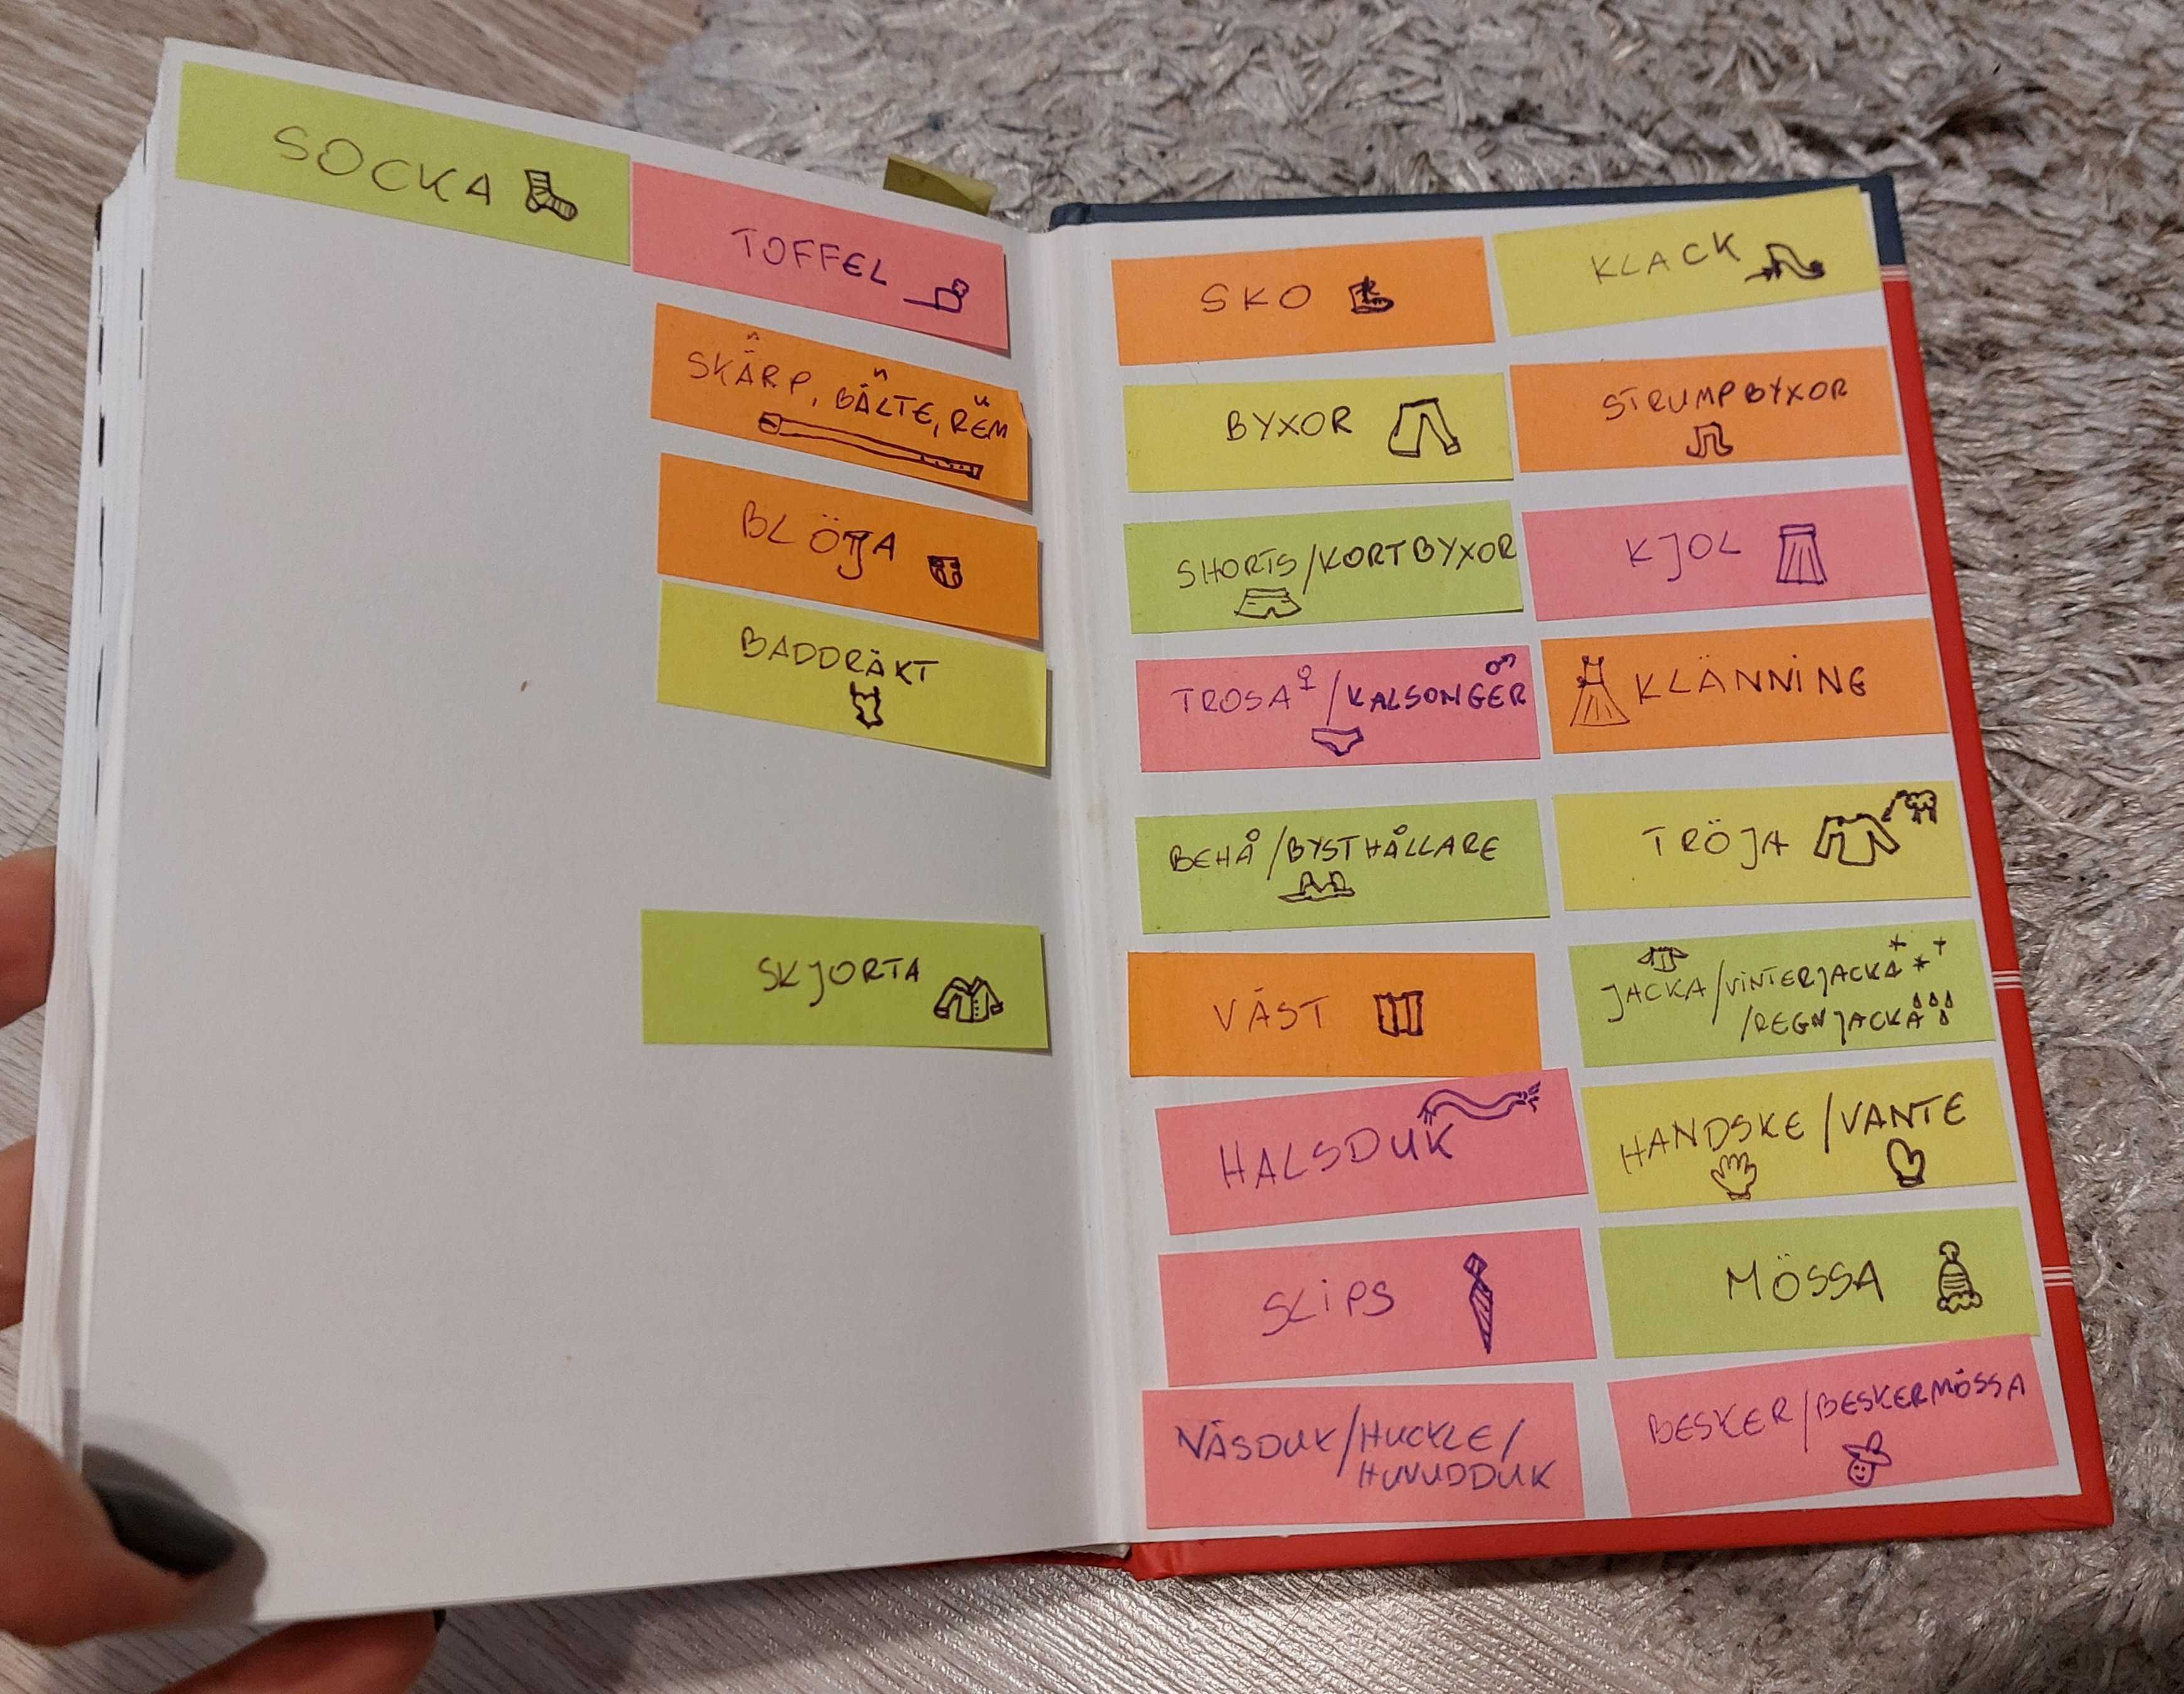 SOCKA
TOFFEL
SKÄRP, BÄLTE, REM
BLÖJA
BADDRÄKT
SKJORTA
SKO
KLACK
BYXOR
STRUMPBYXOR
SHORTS/KORTBYXOR
KJOL
TROSA♀/KALSONGER♂
KLÄNNING
BEHÅ/BYSTHÅLLARE
TRÖJA
VÄST
JACKA/VINTERJACKA
/REGNJACKA
HALSDUK
HANDSKE/VANTE
SLIPS
MÖSSA
NÄSDUK/HUCKLE/
HUVUDDUK
BESKER/BESKERMÖSSA